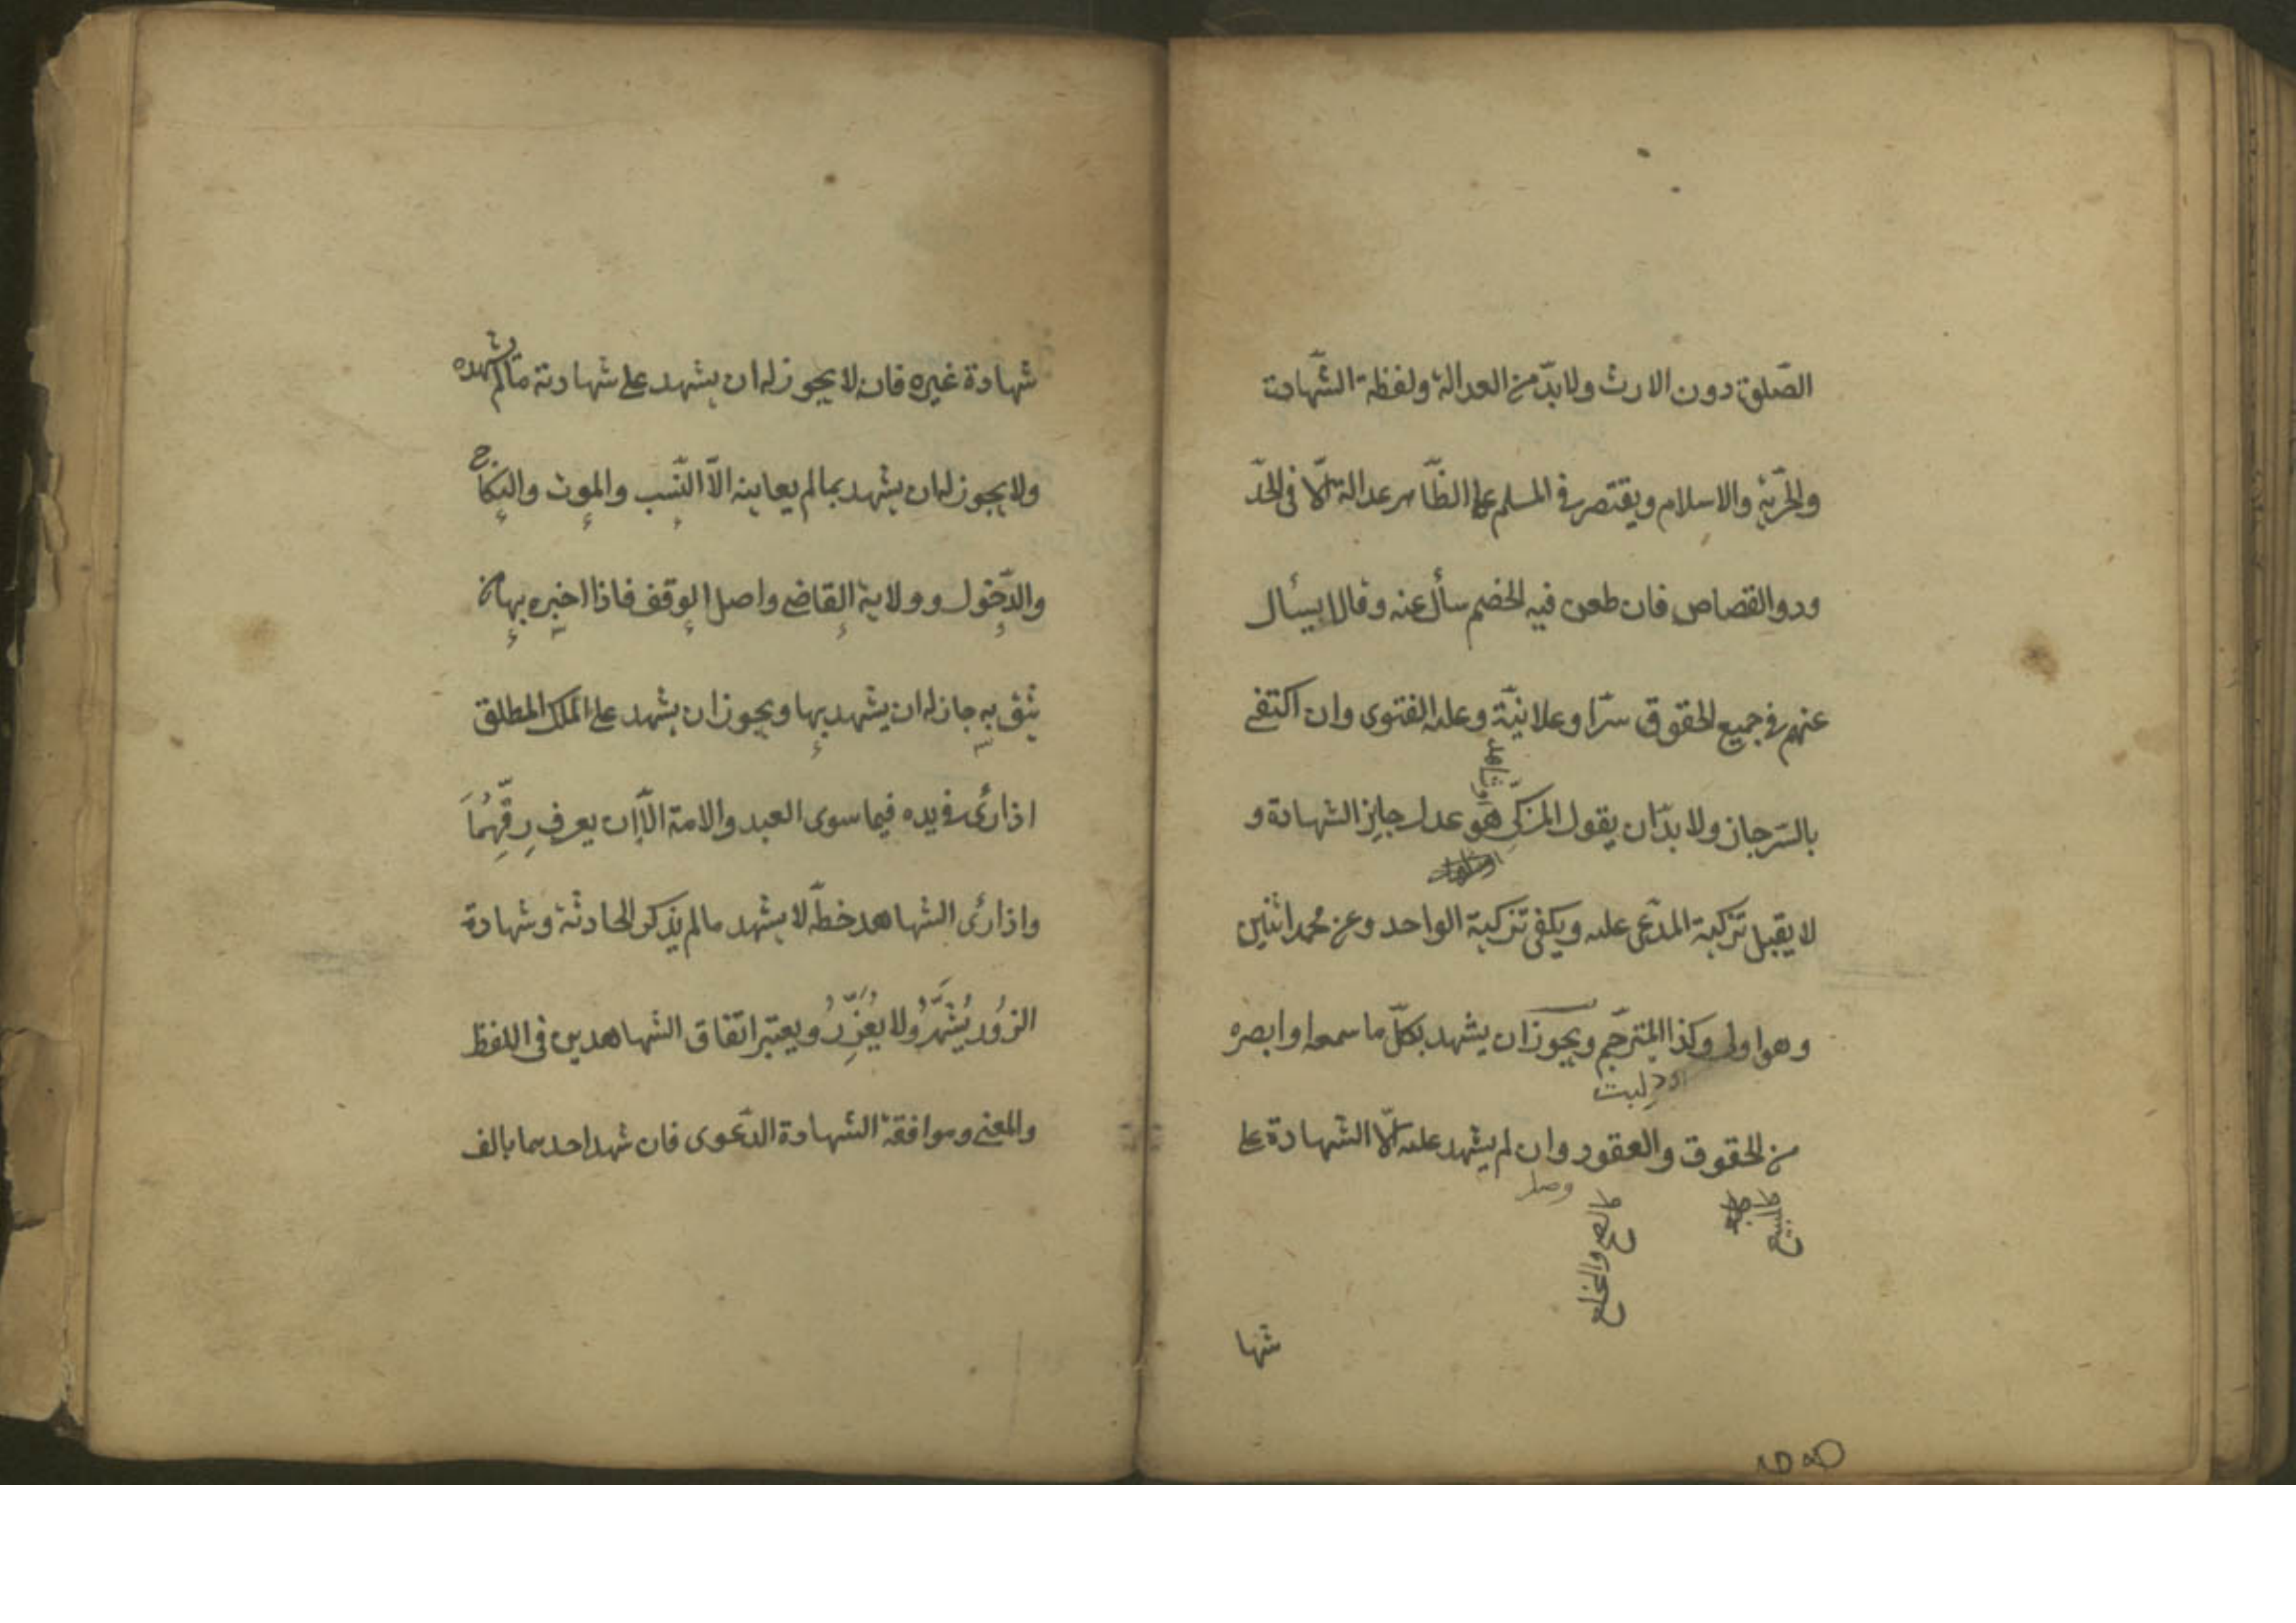 الصّلوة دون الارث ولا بدّ من العدالة ولفظة الشّهادة
والحرّيّة والاسلام ويقتصر فى المسلم على الظّاهر عدالة الّا فى الحدّ
ودو القصاص فان طعن فيه الخصم سأل عنه وقالا يسأل
عنهم فى جميع الحقوق سرّا وعلانيّة وعليه الفتوى وان اكتفى
بالسّر جاز ولا بدّ ان يقول المزكّى هو عدل جايز الشهادة و
لا يقبل تزكية المدّعى عليه ويكفى تزكية الواحد وعن محمد اثنين
وهو اولى وكذا المترجّم ويجوز ان يشهد بكلّ ما سمعه او ابصره
من الحقوق والعقود وان لم يشهد عليه الّا الشهادة على
شها
شهادة غيره فانه لا يجوز له ان يشهد على شهادته مالم يشهده
ولا يجوز له ان يشهد بما لم يعاينه الّا النّسب والموت والنكاح
والدّخول وولاية القاضى واصل الوقف فاذا اخبره بها من
يثق به جاز له ان يشهد بها ويجوز ان يشهد على الملك المطلق
اذا رئى فى يده فيما سوى العبد والامة الّا ان يعرف رقّهما
واذا رئى الشاهد خطّه لا يشهد مالم يذكر الحادثة وشهادة
الزّور يُشهَّرُ ولا يُعَزِّرُ ويعتبر اتفاق الشاهدين فى اللفظ
والمعنى وموافقة الشهادة الدّعوى فان شهد احدهما بالف